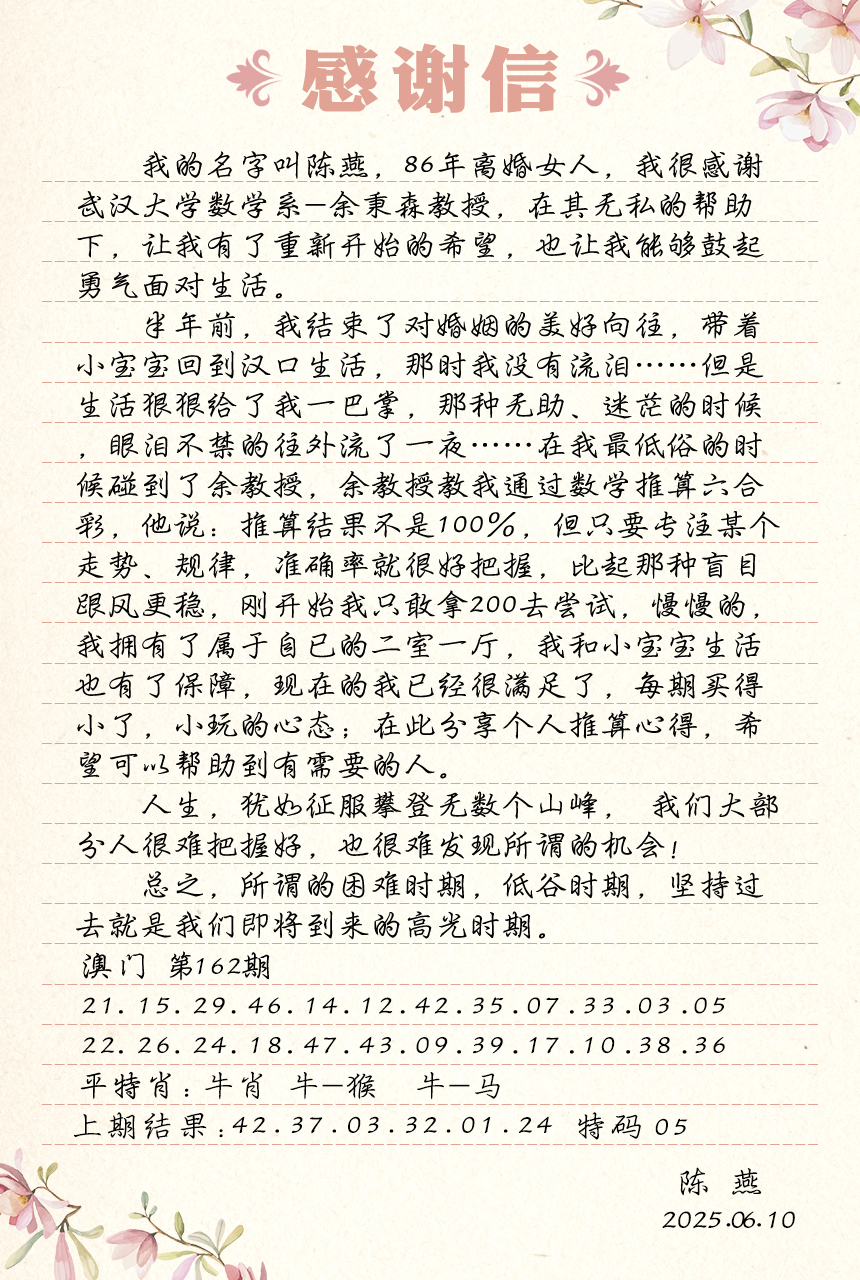 感谢信
我的名字叫陈燕，86年离婚女人，我很感谢
武汉大学数学系—余秉森教授，在其无私的帮助
下，让我有了重新开始的希望，也让我能够鼓起
勇气面对生活。
半年前，我结束了对婚姻的美好向往，带着
小宝宝回到汉口生活，那时我没有流泪……但是
生活狠狠给了我一巴掌，那种无助、迷茫的时候
，眼泪不禁的往外流了一夜……在我最低俗的时
候碰到了余教授，余教授教我通过数学推算六合
彩，他说：推算结果不是100%，但只要专注某个
走势、规律，准确率就很好把握，比起那种盲目
跟风更稳，刚开始我只敢拿200去尝试，慢慢的，
我拥有了属于自已的二室一厅，我和小宝宝生活
也有了保障，现在的我已经很满足了，每期买得
小了，小玩的心态；在此分享个人推算心得，希
望可以帮助到有需要的人。
人生，犹如征服攀登无数个山峰， 我们大部
分人很难把握好，也很难发现所谓的机会！
总之，所谓的困难时期，低谷时期，坚持过
去就是我们即将到来的高光时期。
澳门 第162期
21.15.29.46.14.12.42.35.07.33.03.05
22.26.24.18.47.43.09.39.17.10.38.36
平特肖：牛肖 牛—猴 牛—马
上期结果：42.37.03.32.01.24 特码 05
陈 燕
2025.06.10